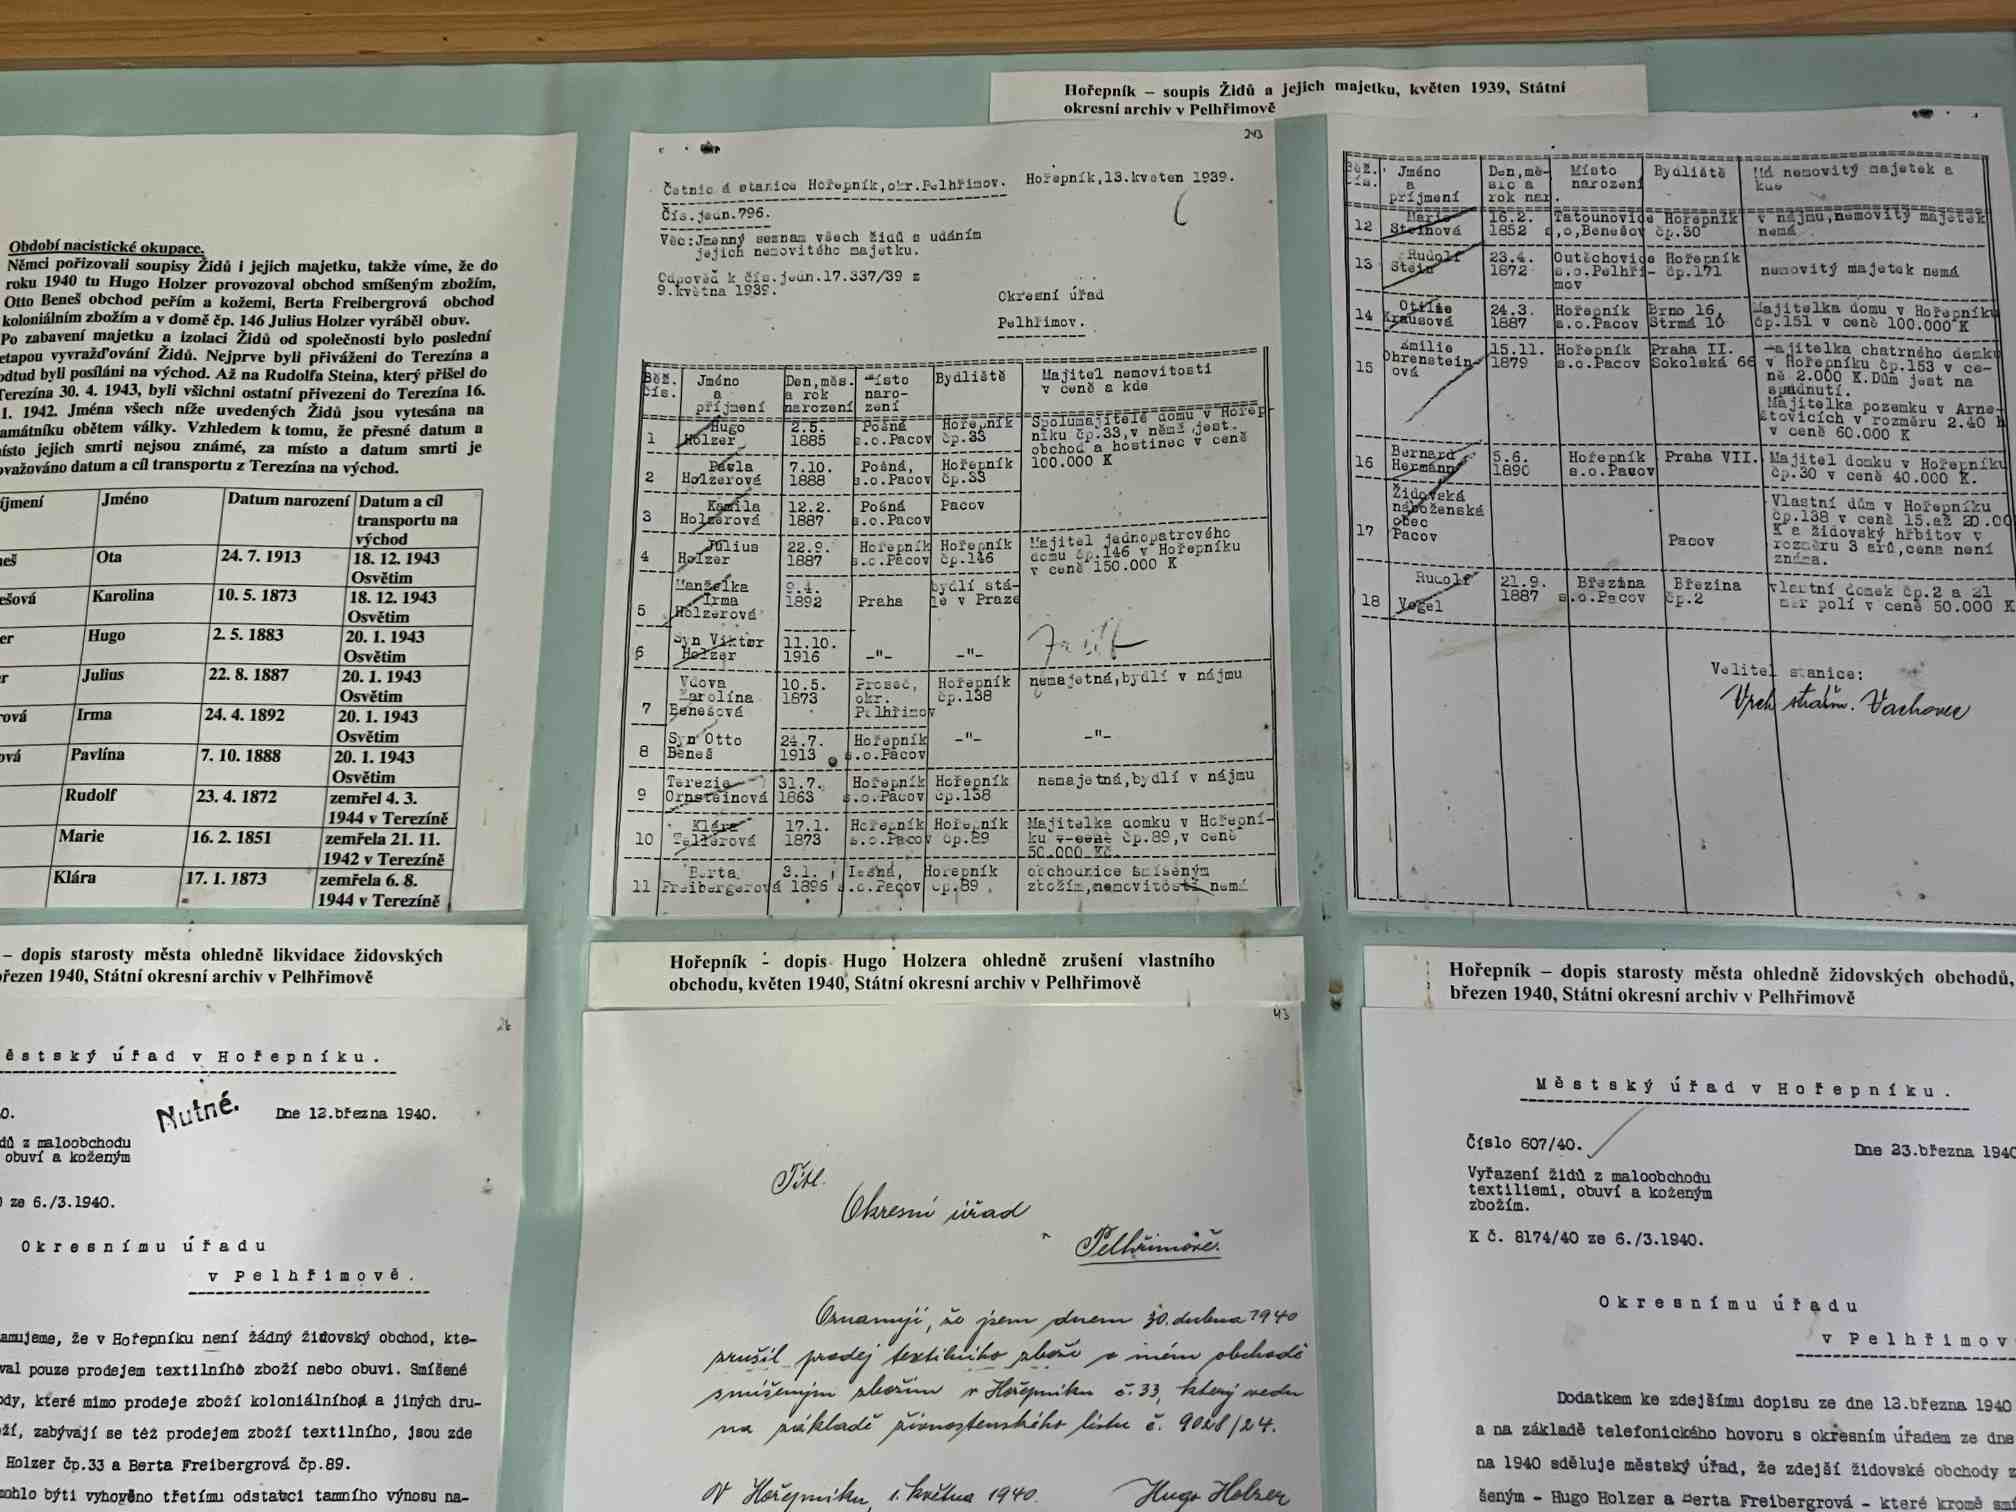 Hořepník – soupis Židů a jejich majetku, květen 1939, Státní
okresní archiv v Pelhřimově
Období nacistické okupace.
Němci pořizovali soupisy Židů i jejich majetku, takže víme, že do
roku 1940 tu Hugo Holzer provozoval obchod smíšeným zbožím,
Otto Beneš obchod peřím a kožemi, Berta Freibergrová obchod
koloniálním zbožím a v domě čp. 146 Julius Holzer vyráběl obuv.
Po zabavení majetku a izolaci Židů od společnosti bylo poslední
etapou vyvražďování Židů. Nejprve byli přiváženi do Terezína a
odtud byli posíláni na východ. Až na Rudolfa Steina, který přišel do
Terezína 30. 4. 1943, byli všichni ostatní přivezeni do Terezína 16.
1. 1942. Jména všech níže uvedených Židů jsou vytesána na
amátníku obětem války. Vzhledem k tomu, že přesné datum a
ísto jejich smrti nejsou známé, za místo a datum smrti je
ovažováno datum a cíl transportu z Terezína na východ.
íjmení Jméno Datum narození Datum a cíl
transportu na
východ
eš Ota 24. 7. 1913 18. 12. 1943
Osvětim
ešová Karolina 10. 5. 1873 18. 12. 1943
Osvětim
er Hugo 2. 5. 1883 20. 1. 1943
Osvětim
r Julius 22. 8. 1887 20. 1. 1943
Osvětim
rová Irma 24. 4. 1892 20. 1. 1943
Osvětim
ová Pavlína 7. 10. 1888 20. 1. 1943
Osvětim
Rudolf 23. 4. 1872 zemřel 4. 3.
1944 v Terezíně
Marie 16. 2. 1851 zemřela 21. 11.
1942 v Terezíně
Klára 17. 1. 1873 zemřela 6. 8.
1944 v Terezíně
243
Četnic á stanice Hořepník,okr.Pelhřimov. Hořepník,13.květen 1939.
Čís.jedn.796.
Věc:Jmenný seznam všech židů s udáním
jejich nemovitého majetku.
Odpověď k čís.jedn.17.337/39 z
9.května 1939.
Okresní úřad
Pelhřimov.
Běž. Jméno Den,měs. místo Bydliště Majitel nemovitosti
čís. a a rok naro- v ceně a kde
příjmení narození zení
1 Hugo 2.5. Pošná Hořepník Spolumajitelé domu v Hořep-
Holzer 1885 s.o.Pacov čp.33 níku čp.33,v němž jest.
obchod a hostinec v ceně
100.000 K
2 Pavla 7.10. Pošná, Hořepník
Holzerová 1888 s.o.Pacov čp.33
3 Kamila 12.2. Pošná Pacov
Holzerová 1887 s.o.Pacov
4 Julius 22.9. Hořepník Hořepník Majitel jednopatrového
Holzer 1887 s.o.Pacov čp.146 domu čp.146 v Hořepníku
v ceně 150.000 K
Manželka 9.4. bydlí stá-
Irma 1892 Praha le v Praze
5 Holzerová
Syn Viktor 11.10.
6 Holzer 1916 -"- -"-
Vdova 10.5. Proseč, Hořepník nemajetná,bydlí v nájmu
Karolína 1873 okr. čp.138
7 Benešová Pelhřimov
Syn Otto 24.7. Hořepník -"- -"-
8 Beneš 1913 s.o.Pacov
Terezie 31.7. Hořepník Hořepník nemajetná,bydlí v nájmu
9 Ornsteinová 1863 s.o.Pacov čp.138
Klára 17.1. Hořepník Hořepník Majitelka domku v Hořepní-
10 Zellerová 1873 s.o.Pacov čp.89 ku v ceně čp.89,v ceně
50.000 Kč.
Berta 3.1. Hořepník obchodnice smíšeným
11 Freibergerová 1896 s.o.Pacov čp.89 zbožím,nemovitosti nemá
Běž. Jméno Den,mě- Místo Bydliště Má nemovitý majetek a
čís. a síc a narození kde
příjmení rok nar.
12 Marie 16.2. Tatounovice Hořepník v nájmu,nemovitý majetek
Steinová 1852 s,o,Benešov čp.30 nemá
13 Rudolf 23.4. Outěchovice Hořepník
Stein 1872 s.o.Pelhři- čp.171 nemovitý majetek nemá
mov
14 Otilie 24.3. Hořepník Brno 16, Majitelka domu v Hořepníku
Krausová 1887 s.o.Pacov Strmá 16 čp.151 v ceně 100.000 K
15 Emilie 15.11. Hořepník Praha II. ajitelka chatrného domku
Ohrenstein- 1879 s.o.Pacov Sokolská 66 v Hořepníku čp.153 v ce-
ová ně 2.000 K.Dům jest na
spadnutí.
Majitelka pozemku v Arne-
štovicích v rozměru 2.40 h
v ceně 60.000 K
16 Bernard 5.6. Hořepník Praha VII. Majitel domku v Hořepníku
Hermann 1890 s.o.Pacov čp.30 v ceně 40.000 K.
Židovská Vlastní dům v Hořepníku
náboženská čp.138 v ceně 15.až 20.00
obec K a židovský hřbitov v
17 Pacov Pacov rozměru 3 arů,cena není
známa.
Rudolf 21.9. Březina Březina vlastní domek čp.2 a 21
18 Vogel 1887 s.o.Pacov čp.2 měr polí v ceně 50.000 K
Velitel stanice:
Vrch strážm. Vachovec
– dopis starosty města ohledně likvidace židovských
březen 1940, Státní okresní archiv v Pelhřimově
26
ěstský úřad v Hořepníku.
Nutné.
0. Dne 12.března 1940.
dů z maloobchodu
obuví a koženým
ze 6./3.1940.
Okresnímu úřadu
v Pelhřimově.
amujeme, že v Hořepníku není žádný židovský obchod, kte-
val pouze prodejem textilního zboží nebo obuvi. Smíšené
ody, které mimo prodeje zboží koloniálního a jiných dru-
ží, zabývají se též prodejem zboží textilního, jsou zde
Holzer čp.33 a Berta Freibergrová čp.89.
mohlo býti vyhověno třetímu odstavci tamního výnosu na-
Hořepník - dopis Hugo Holzera ohledně zrušení vlastního
obchodu, květen 1940, Státní okresní archiv v Pelhřimově
43
Titl.
Okresní úřad
v Pelhřimově.
Oznamuji, že jsem dnem 30. dubna 1940
zrušil prodej textilního zboží v mém obchodě
smíšeným zbožím v Hořepníku č. 33, který vedu
na základě živnostenského listu č. 9028/24.
V Hořepníku, 1. května 1940. Hugo Holzer
Hořepník – dopis starosty města ohledně židovských obchodů,
březen 1940, Státní okresní archiv v Pelhřimově
Městský úřad v Hořepníku.
Číslo 607/40. Dne 23.března 1940
Vyřazení židů z maloobchodu
textiliemi, obuví a koženým
zbožím.
K č. 8174/40 ze 6./3.1940.
Okresnímu úřadu
v Pelhřimov
Dodatkem ke zdejšímu dopisu ze dne 12.března 1940
a na základě telefonického hovoru s okresním úřadem ze dne
na 1940 sděluje městský úřad, že zdejší židovské obchody z
šeným - Hugo Holzer a Berta Freibergrová - které kromě